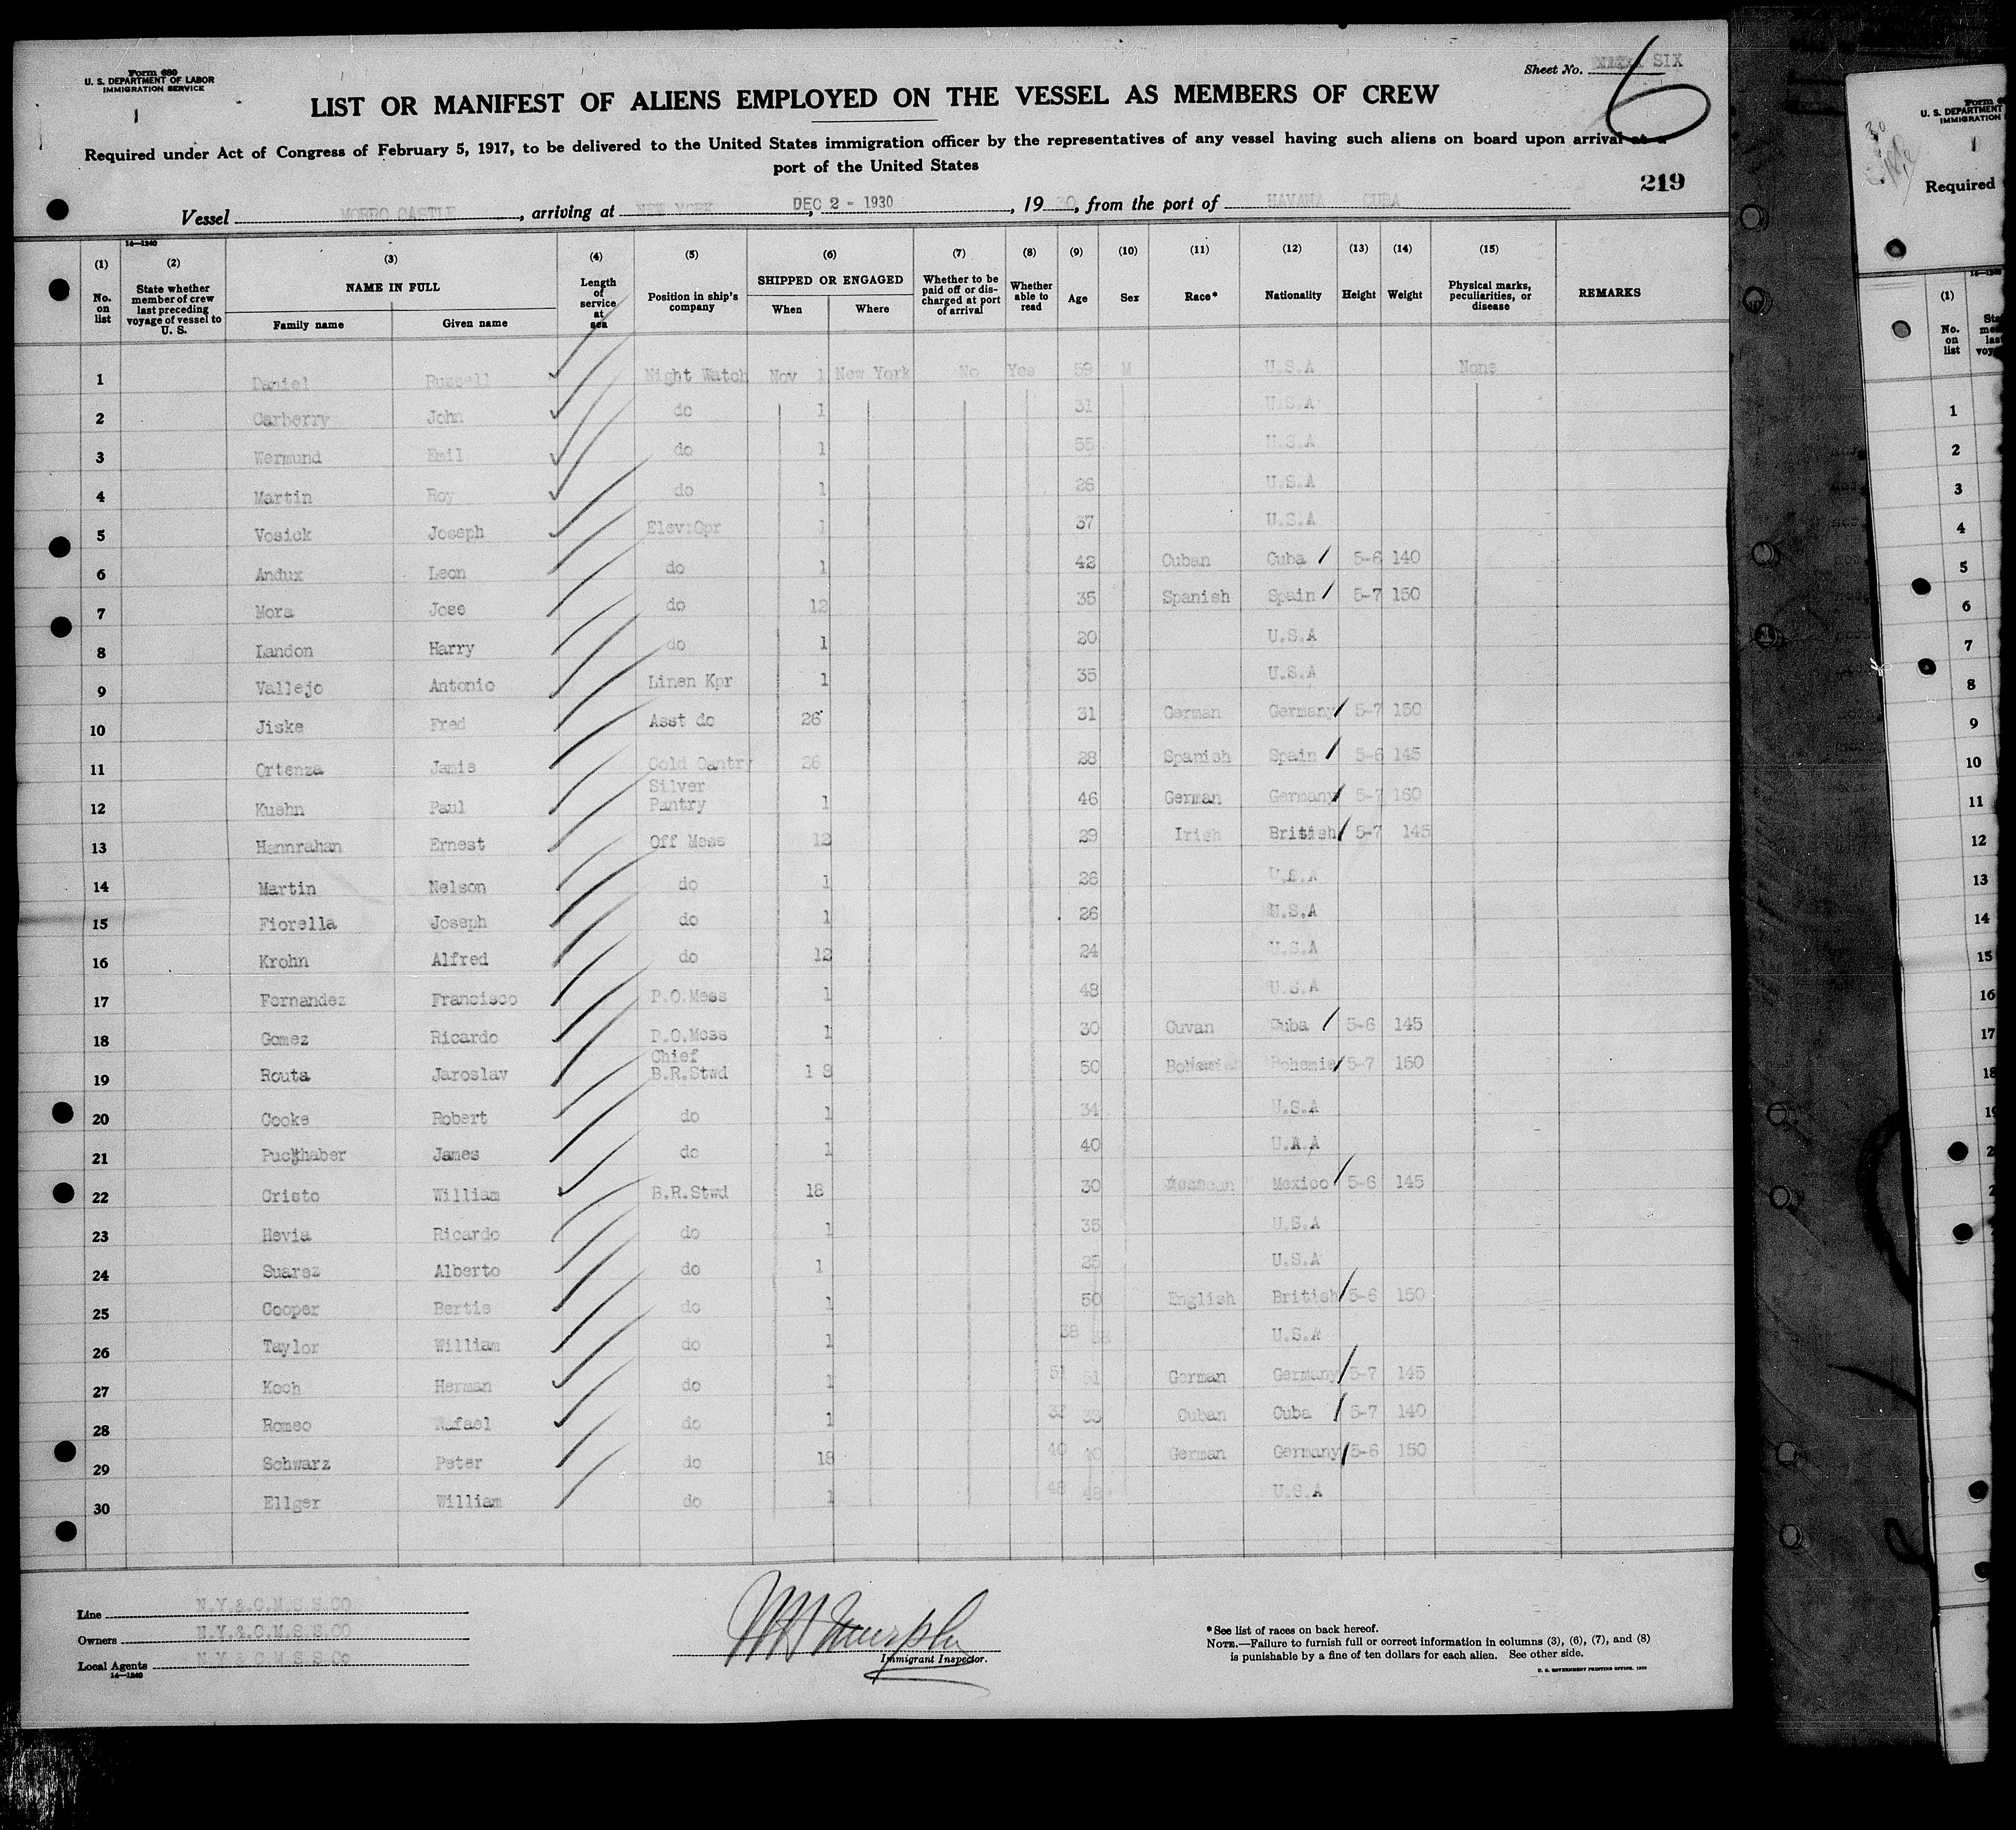 Form 680
U. S. DEPARTMENT OF LABOR
IMMIGRATION SERVICE
Sheet No. SIX
6
LIST OR MANIFEST OF ALIENS EMPLOYED ON THE VESSEL AS MEMBERS OF CREW
Required under Act of Congress of February 5, 1917, to be delivered to the United States immigration officer by the representatives of any vessel having such aliens on board upon arrival at a
port of the United States
219
Vessel MORRO CASTLE, arriving at NEW YORK, DEC 2 - 1930, 19 30, from the port of HAVANA CUBA
14—1240
(1) No. on list
(2) State whether member of crew last preceding voyage of vessel to U. S.
(3) NAME IN FULL Family name Given name
(4) Length of service at sea
(5) Position in ship's company
(6) SHIPPED OR ENGAGED When Where
(7) Whether to be paid off or discharged at port of arrival
(8) Whether able to read
(9) Age
(10) Sex
(11) Race*
(12) Nationality
(13) Height
(14) Weight
(15) Physical marks, peculiarities, or disease
REMARKS
1 Daniel Russell Night Watch Nov 1 New York No Yes 59 M U.S.A None
2 Carberry John do 1 31 U.S.A
3 Wermund Emil do 1 55 U.S.A
4 Martin Roy do 1 26 U.S.A
5 Vosick Joseph Elev:Opr 1 37 U.S.A
6 Andux Leon do 1 42 Cuban Cuba 5-6 140
7 Mora Jose do 12 35 Spanish Spain 5-7 150
8 Landon Harry do 1 20 U.S.A
9 Vallejo Antonio Linen Kpr 1 35 U.S.A
10 Jiske Fred Asst do 26 31 German Germany 5-7 150
11 Ortenza Jamie Cold Oantry 26 28 Spanish Spain 5-6 145
12 Kuehn Paul Silver Pantry 1 46 German Germany 5-7 160
13 Hannrahan Ernest Off Mess 12 29 Irish British 5-7 145
14 Martin Nelson do 1 26 U.S.A
15 Fiorella Joseph do 1 26 U.S.A
16 Krohn Alfred do 12 24 U.S.A
17 Fernandez Francisco P.O.Mess 1 48 U.S.A
18 Gomez Ricardo P.O.Mess 1 30 Cuvan Cuba 5-6 145
19 Routa Jaroslav Chief B.R.Stwd 1 8 50 Bohemian Bohemia 5-7 150
20 Cooke Robert do 1 34 U.S.A
21 Puckhaber James do 1 40 U.A.A
22 Cristo William B.R.Stwd 18 30 Mexico 5-6 145
23 Hevia Ricardo do 1 35 U.S.A
24 Suarez Alberto do 1 25 U.S.A
25 Cooper Bertie do 1 50 English British 5-6 150
26 Taylor William do 1 38 38 U.S.A
27 Koch Herman do 1 51 51 German Germany 5-7 145
28 Romeo Rafael do 1 33 33 Cuban Cuba 5-7 140
29 Schwarz Peter do 18 40 40 German Germany 5-6 150
30 Ellger William do 1 48 48 U.S.A
Line N.Y.&.C.M.S S.CO
Owners N.Y.&.C.M.S.S.CO
Local Agents N.Y.& C.M.S.S.Co
14—1240
Murphy
Immigrant Inspector.
*See list of races on back hereof.
NOTE.—Failure to furnish full or correct information in columns (3), (6), (7), and (8)
is punishable by a fine of ten dollars for each alien. See other side.
U. S. GOVERNMENT PRINTING OFFICE. 1930
U. S. DEPARTMENT
IMMIGRATION
Required
(1)
No. on list
1
2
3
4
5
6
7
8
9
10
11
12
13
14
15
16
17
18